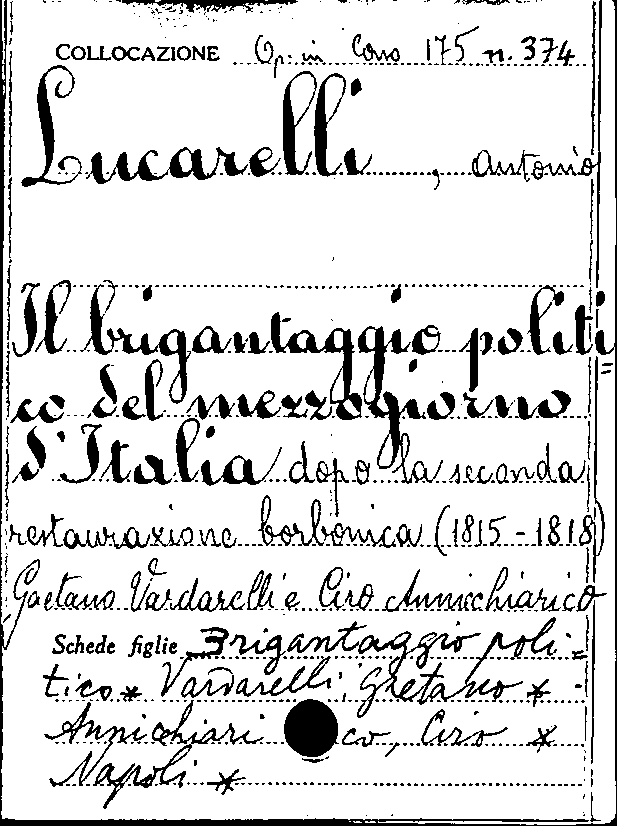 COLLOCAZIONE Op. in Cons 175 n. 374
Lucarelli, Antonio
Il brigantaggio politi=
co del mezzogiorno
d'Italia dopo la seconda
restaurazione borbonica (1815-1818)
Gaetano Vardarelli e Ciro Annichiarico
Schede figlie Brigantaggio poli=
tico * Vardarelli, Gaetano * -
Annichiari co, Ciro *
Napoli *